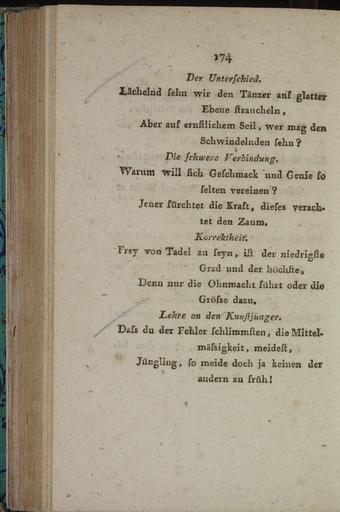 174
Der Unterſchied.
Lächelnd ſehn wir den Tänzer auf glatter
Ebene ſtraucheln,
Aber auf ernſtlichem Seil, wer mag den
Schwindelnden ſehn?
Die ſchwere Verbindung.
Warum will ſich Geſchmack und Genie ſo
ſelten vereinen?
Jener fürchtet die Kraft, dieſes verach-
tet den Zaum.
Korrektheit.
Frey von Tadel zu ſeyn, iſt der niedrigſte
Grad und der höchſte,
Denn nur die Ohnmacht führt oder die
Gröſse dazu.
Lehre an den Kunſtjünger.
Daſs du der Fehler ſchlimmſten, die Mittel-
mäſsigkeit, meideſt,
Jüngling, ſo meide doch ja keinen der
andern zu früh!